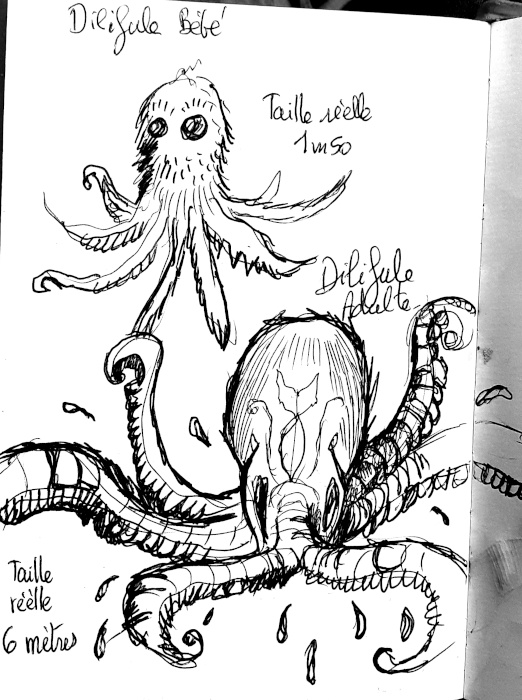 Dilifule Bébé
Taille réelle
1m50
Dilifule
Adulte
Taille
réelle
6 mètres